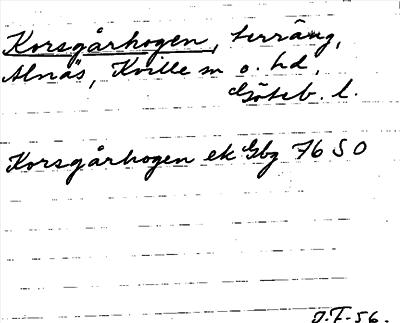 Korsgårhogen, terräng,
Alnäs, Kville sn o. hd,
Göteb. l.
Korsgårhogen ek Gbg 76 S O
J.F. 56.